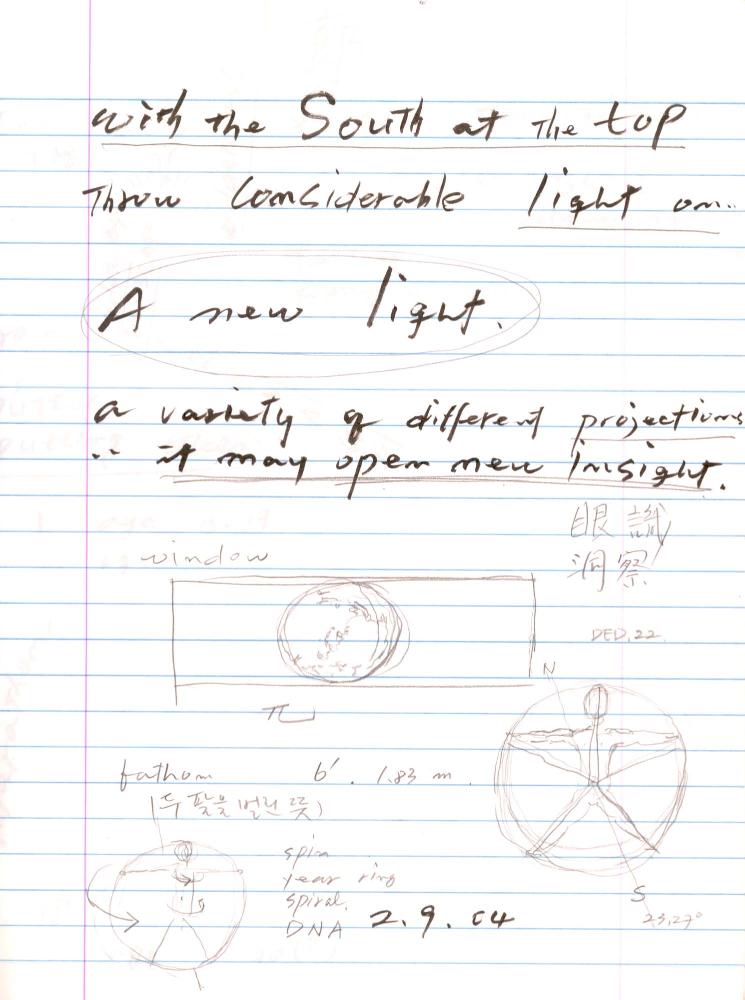 with the South at the top
Throw Considerable light on..
A new light.
a variety of different projections
∴ it may open new Insight.
眼識
洞察
window
DED.22.
N
π
fathom 6'. 1.83 m.
(두 팔을 벌린 뜻)
S
23.27°
spin
year ring
spiral.
DNA 2.9.04